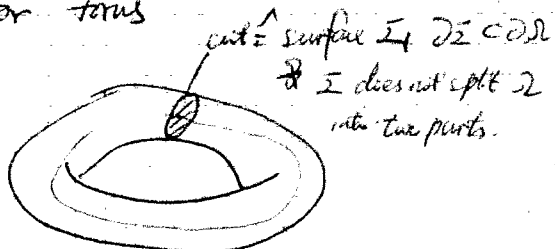 or torus
cut ≙ surface Σ, ∂Σ ⊂ ∂Ω
Σ does not split Ω
into two parts.